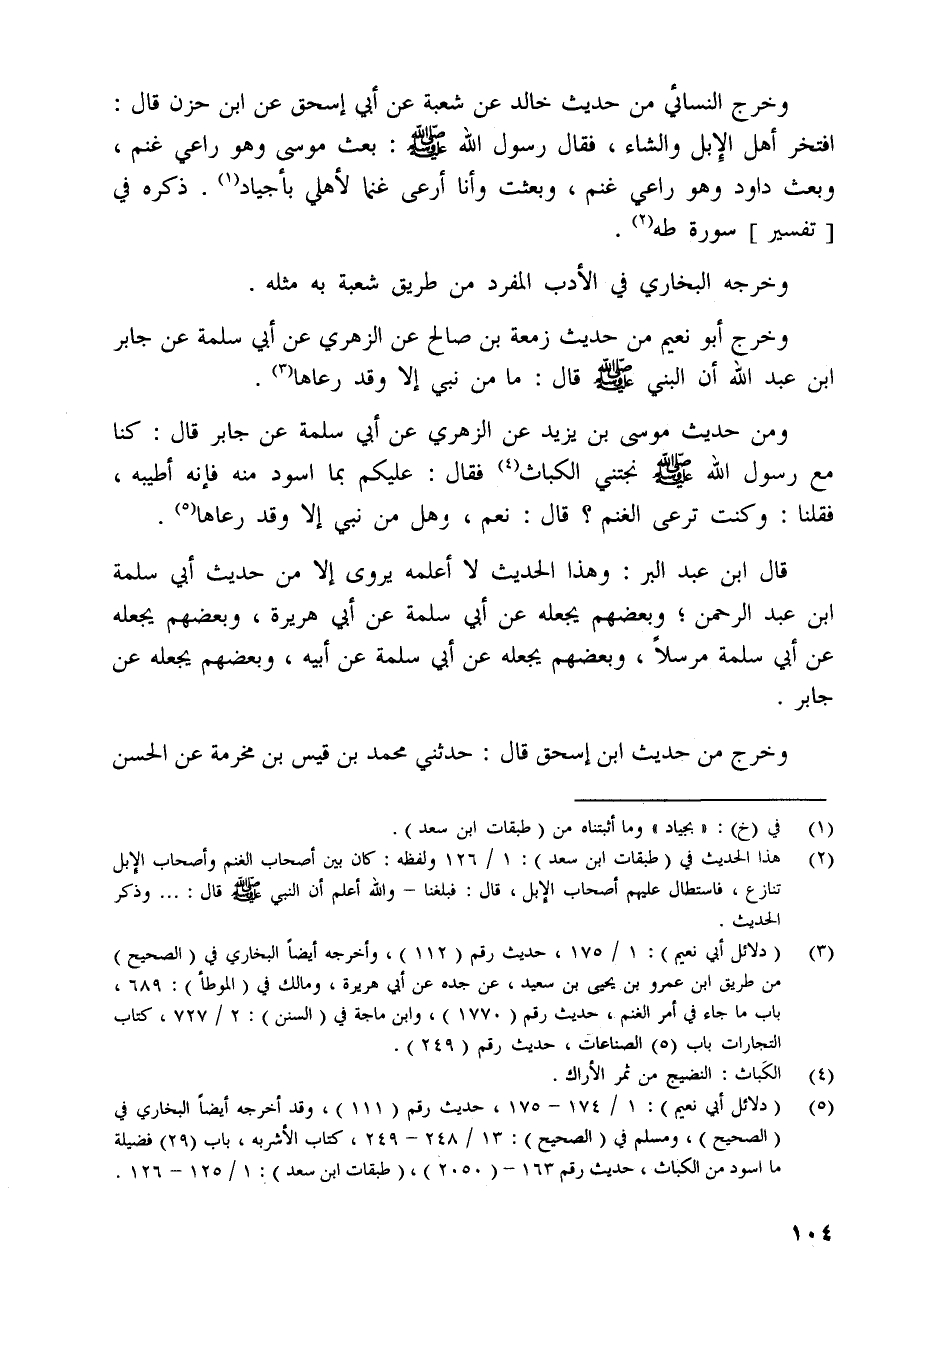 وخرج النسائي من حديث خالد عن شعبة عن أبي إسحق عن ابن حزن قال :
افتخر أهل الإبل والشاء ، فقال رسول الله ﷺ : بعث موسى وهو راعي غنم ،
وبعث داود وهو راعي غنم ، وبعثت وأنا أرعى غنما لأهلي بأجياد(١) . ذكره في
[ تفسير ] سورة طه(٢) .
وخرجه البخاري في الأدب المفرد من طريق شعبة به مثله .
وخرج أبو نعيم من حديث زمعة بن صالح عن الزهري عن أبي سلمة عن جابر
ابن عبد الله أن البني ﷺ قال : ما من نبي إلا وقد رعاها(٣) .
ومن حديث موسى بن يزيد عن الزهري عن أبي سلمة عن جابر قال : كنا
مع رسول الله ﷺ نجتني الكباث(٤) فقال : عليكم بما اسود منه فإنه أطيبه ،
فقلنا : وكنت ترعى الغنم ؟ قال : نعم ، وهل من نبي إلا وقد رعاها(٥) .
قال ابن عبد البر : وهذا الحديث لا أعلمه يروى إلا من حديث أبي سلمة
ابن عبد الرحمن ؛ وبعضهم يجعله عن أبي سلمة عن أبي هريرة ، وبعضهم يجعله
عن أبي سلمة مرسلاً ، وبعضهم يجعله عن أبي سلمة عن أبيه ، وبعضهم يجعله عن
جابر .
وخرج من حديث ابن إسحق قال : حدثني محمد بن قيس بن مخرمة عن الحسن
(١) في (خ) : « بجياد » وما أثبتناه من ( طبقات ابن سعد ) .
(٢) هذا الحديث في ( طبقات ابن سعد ) : ١ / ١٢٦ ولفظه : كان بين أصحاب الغنم وأصحاب الإبل
تنازع ، فاستطال عليهم أصحاب الإبل ، قال : فبلغنا – والله أعلم أن النبي ﷺ قال : ... وذكر
الحديث .
(٣) ( دلائل أبي نعيم ) : ١ / ١٧٥ ، حديث رقم ( ١١٢ ) ، وأخرجه أيضاً البخاري في ( الصحيح )
من طريق ابن عمرو بن يحيى بن سعيد ، عن جده عن أبي هريرة ، ومالك في ( الموطأ ) : ٦٨٩ ،
باب ما جاء في أمر الغنم ، حديث رقم ( ١٧٧٠ ) ، وابن ماجة في ( السنن ) : ٢ / ٧٢٧ ، كتاب
التجارات باب (٥) الصناعات ، حديث رقم ( ٢٤٩ ) .
(٤) الكَباث : النضيج من ثمر الأراك .
(٥) ( دلائل أبي نعيم ) : ١ / ١٧٤ – ١٧٥ ، حديث رقم ( ١١١ ) ، وقد أخرجه أيضاً البخاري في
( الصحيح ) ، ومسلم في ( الصحيح ) : ١٣ / ٢٤٨ – ٢٤٩ ، كتاب الأشربه ، باب (٢٩) فضيلة
ما اسود من الكباث ، حديث رقم ١٦٣ – ( ٢٠٥٠ ) ، ( طبقات ابن سعد ) : ١ / ١٢٥ – ١٢٦ .
١٠٤